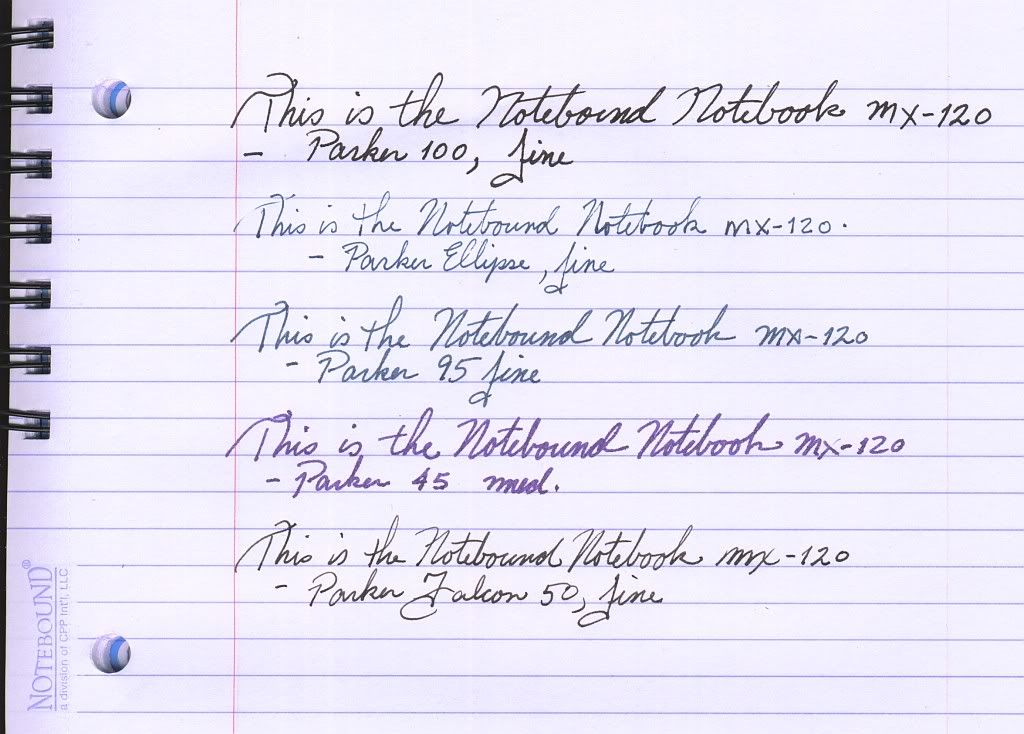 This is the Notebound Notebook MX-120
- Parker 100, fine
This is the Notebound Notebook MX-120.
- Parker Ellipse, fine
This is the Notebound Notebook MX-120
- Parker 95 fine
This is the Notebound Notebook MX-120
- Parker 45 med.
This is the Notebound Notebook MX-120
- Parker Falcon 50, fine
NOTEBOUND®
a division of CPP Int'l, LLC